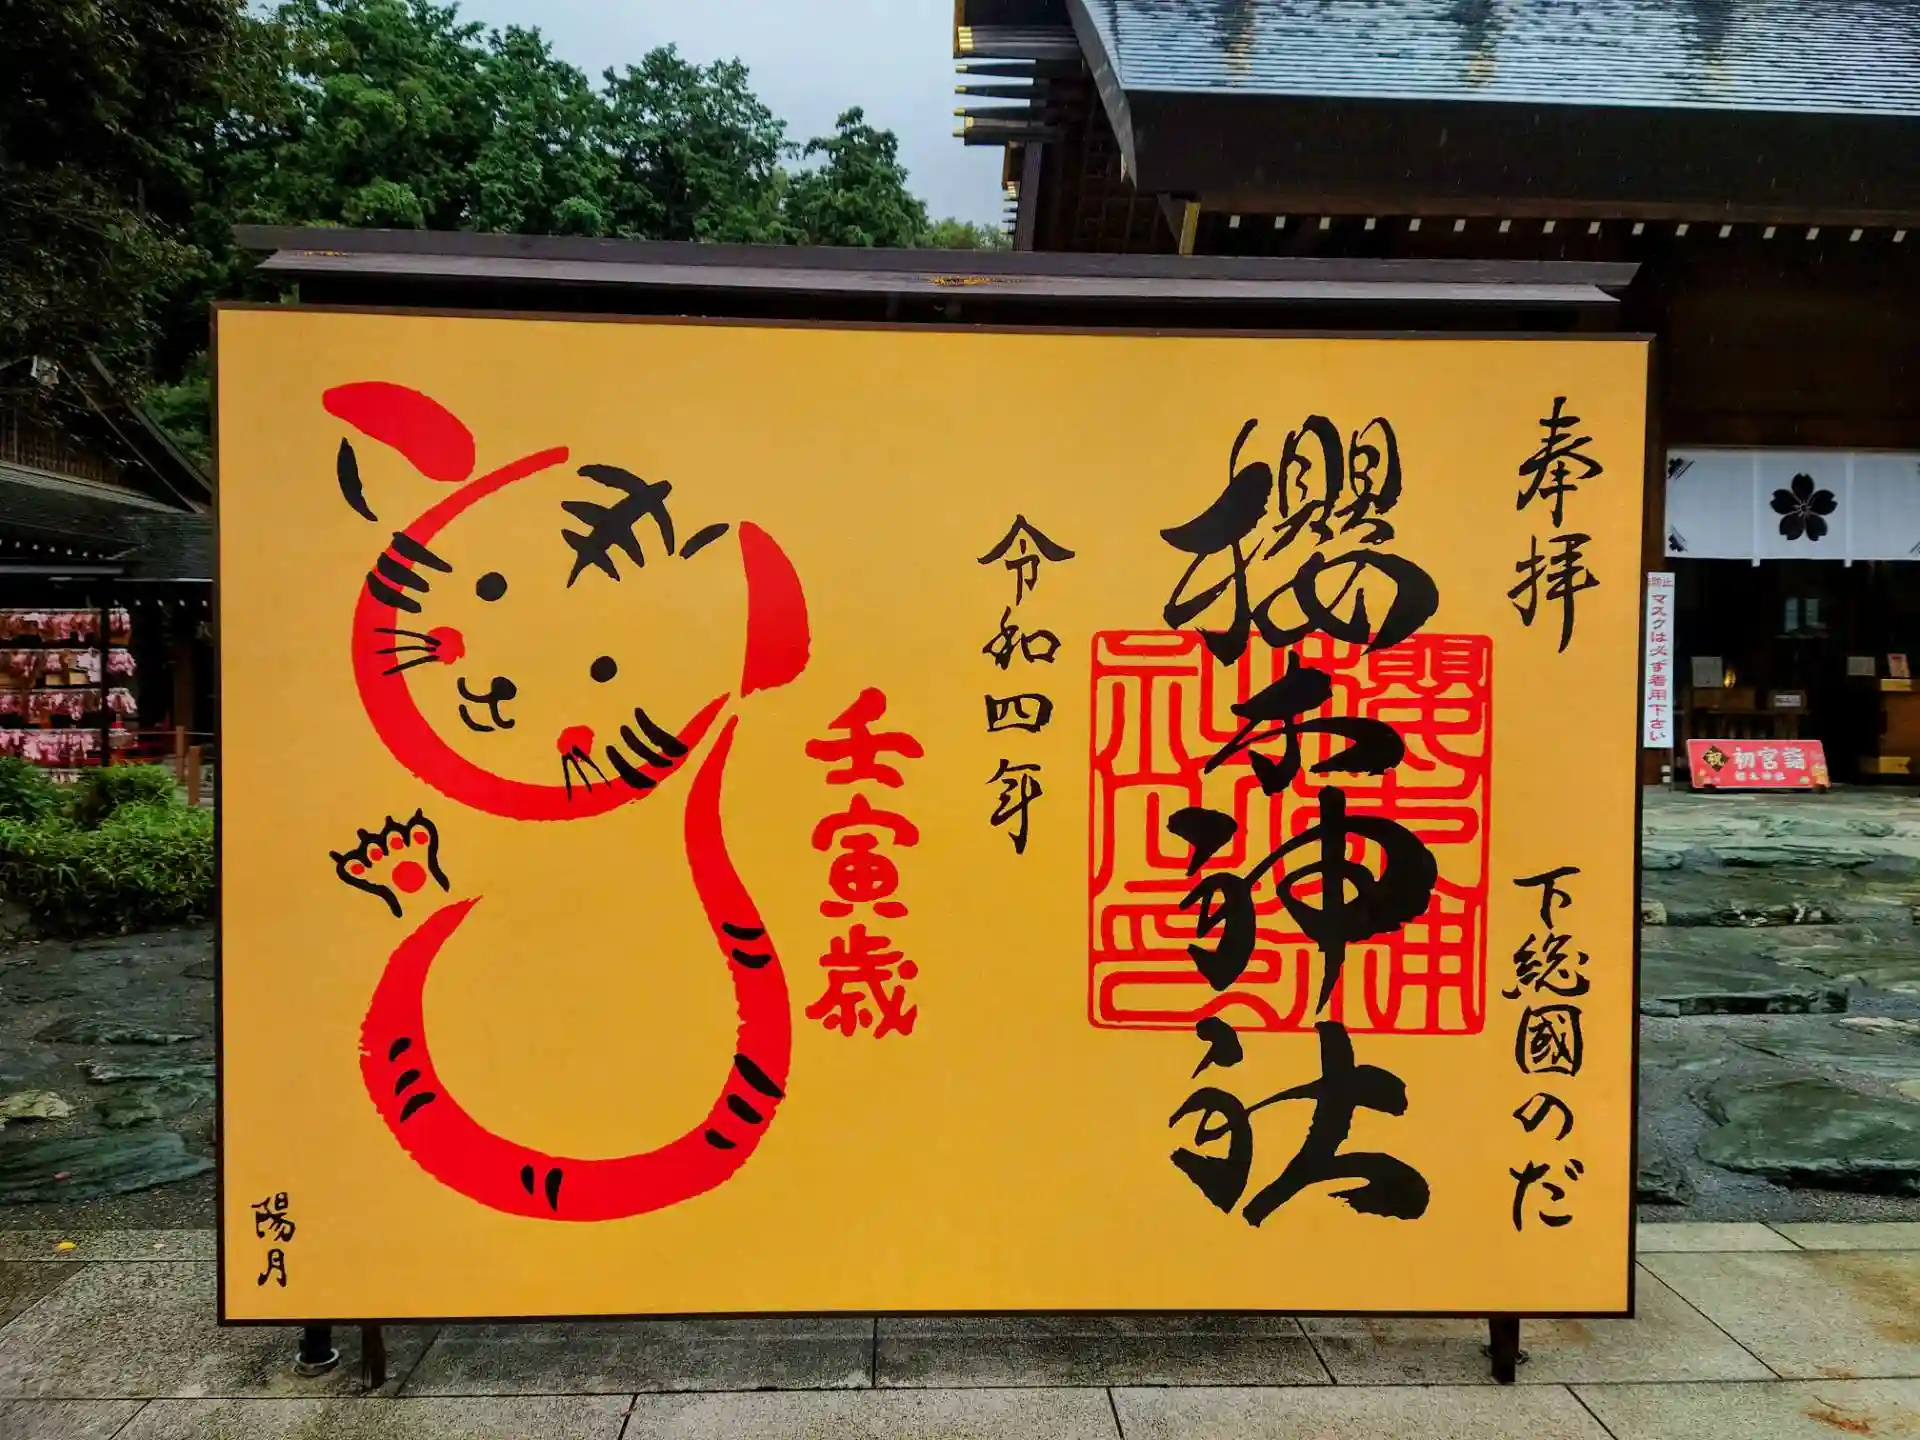 奉拝
下総國のだ
櫻木神社
令和四年
壬寅歳
陽月
マスクは必ず着用下さい
祝
初宮詣
櫻木神社